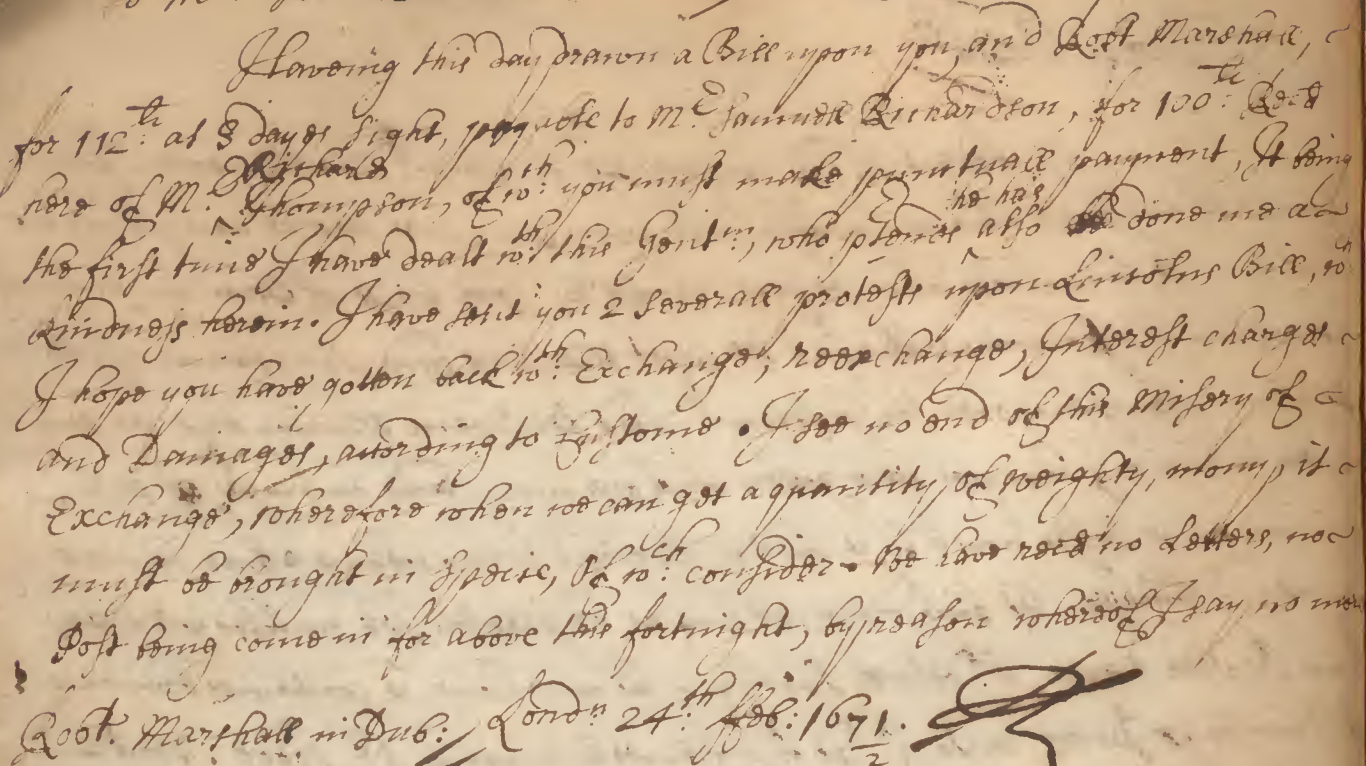 Haveing this day drawn a Bill upon you, and Robt Marshall,
for 112li: at 8 dayes sight, payable to Mr Samuell Richardson, for 100li: Recd
here of Mr. Richard Thompson, of wth: you must make punctuall payment, It being
the first time I have dealt wth: this Gentm:, who ptends he has also done me a
kindness herein. I have sent you 2 severall protests upon Lincolns Bill, wch
I hope you have gotten back wth: Exchange, reexchange, Interest charges
and Damages, according to Custome. I see no end of this Misery of
Exchange, wherefore when we can get a quantitity of weighty, mony, it
must be brought in Specie, Of wch: consider. We have recd no Letters, no
Post being come in for above this fortnight, by reason whereof I say no more
Robt. Marshall in Dub: Londn 24th: ffeb: 1671/2.